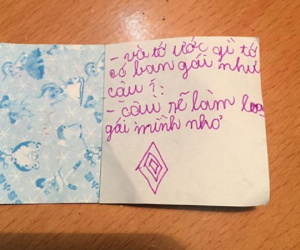 - và tớ ước gì tớ
có bạn gái như
cậu ý:
- cậu sẽ làm
gái mình nhỏ